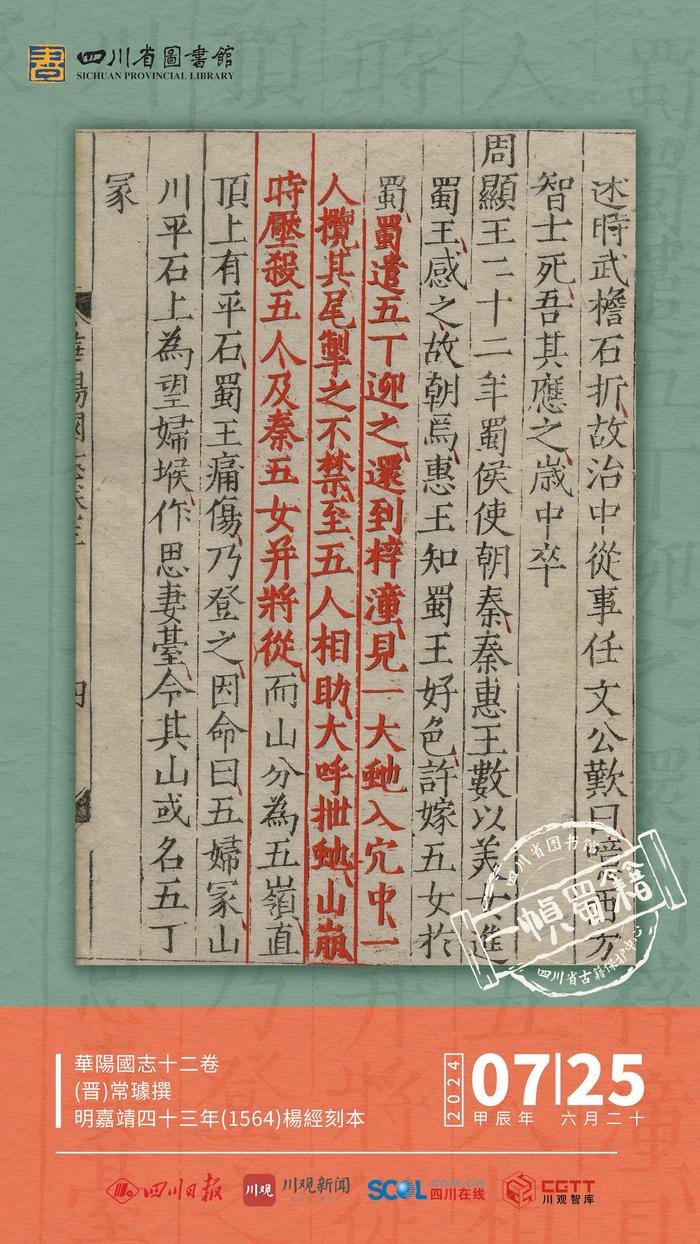 四川省圖書館
SICHUAN PROVINCIAL LIBRARY
述時武擔石折故治中從事任文公歎曰噫西方
智士死吾其應之歲中卒
周顯王二十二年蜀侯使朝秦秦惠王數以美女進
蜀王感之故朝焉惠王知蜀王好色許嫁五女於
蜀蜀遣五丁迎之還到梓潼見一大虵入穴中一
人攬其尾掣之不禁至五人相助大呼抴虵山崩
時壓殺五人及秦五女并將從而山分為五嶺直
頂上有平石蜀王痛傷乃登之因命曰五婦冢山
川平石上為望婦堠作思妻臺今其山或名五丁
冢
四川省图书馆
一幀蜀籍
四川省古籍保护中心
華陽國志十二卷
(晋)常璩撰
明嘉靖四十三年(1564)楊經刻本
2024
07|25
甲辰年 六月二十
四川日报
川观
川观新闻
SCOL.COM.CN
四川在线
CGTT
川观智库